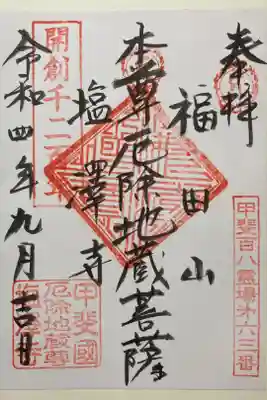 奉拝
福田山
本尊厄除地蔵菩薩
塩澤寺
令和四年九月吉日
開創千二百年
甲斐百八霊場第六三番
甲斐國
厄除地蔵尊
塩澤寺